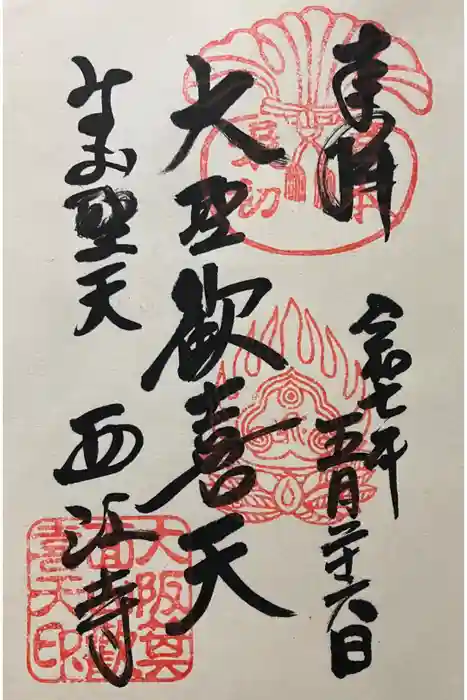 奉拝
令和七年五月二十六日
大聖歓喜天
みのお聖天
西江寺
最初
大阪箕
喜天印